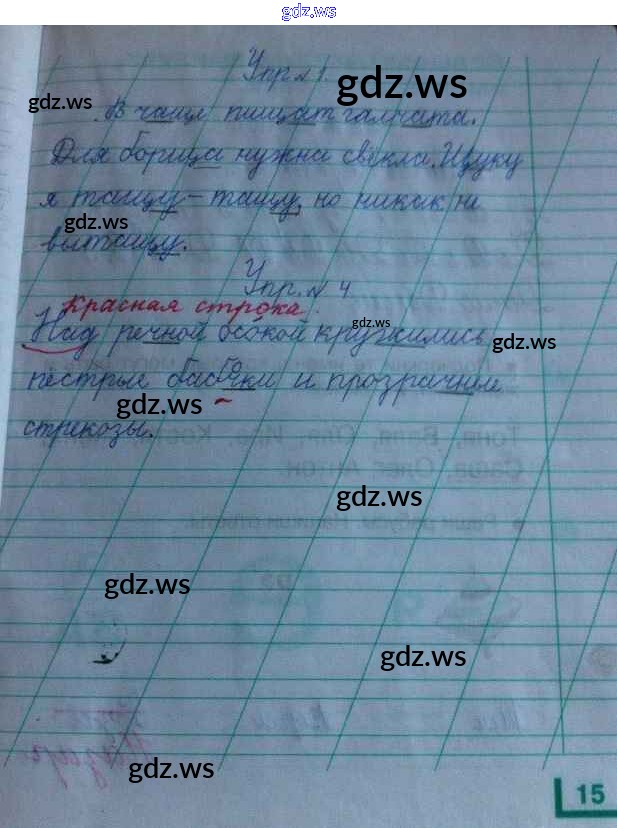 gdz.ws
Упр. № 1.
gdz.ws
gdz.ws
В чаще пищат галчата.
Для борща нужна свёкла. Щуку
я тащу - тащу, но никак не
gdz.ws
вытащу.
Упр. № 4
Красная строка.
gdz.ws
Над речной осокой кружились
gdz.ws
пёстрые бабочки и прозрачные
gdz.ws
стрекозы.
Саша, Олег, Антон.
gdz.ws
gdz.ws
gdz.ws
gdz.ws
15